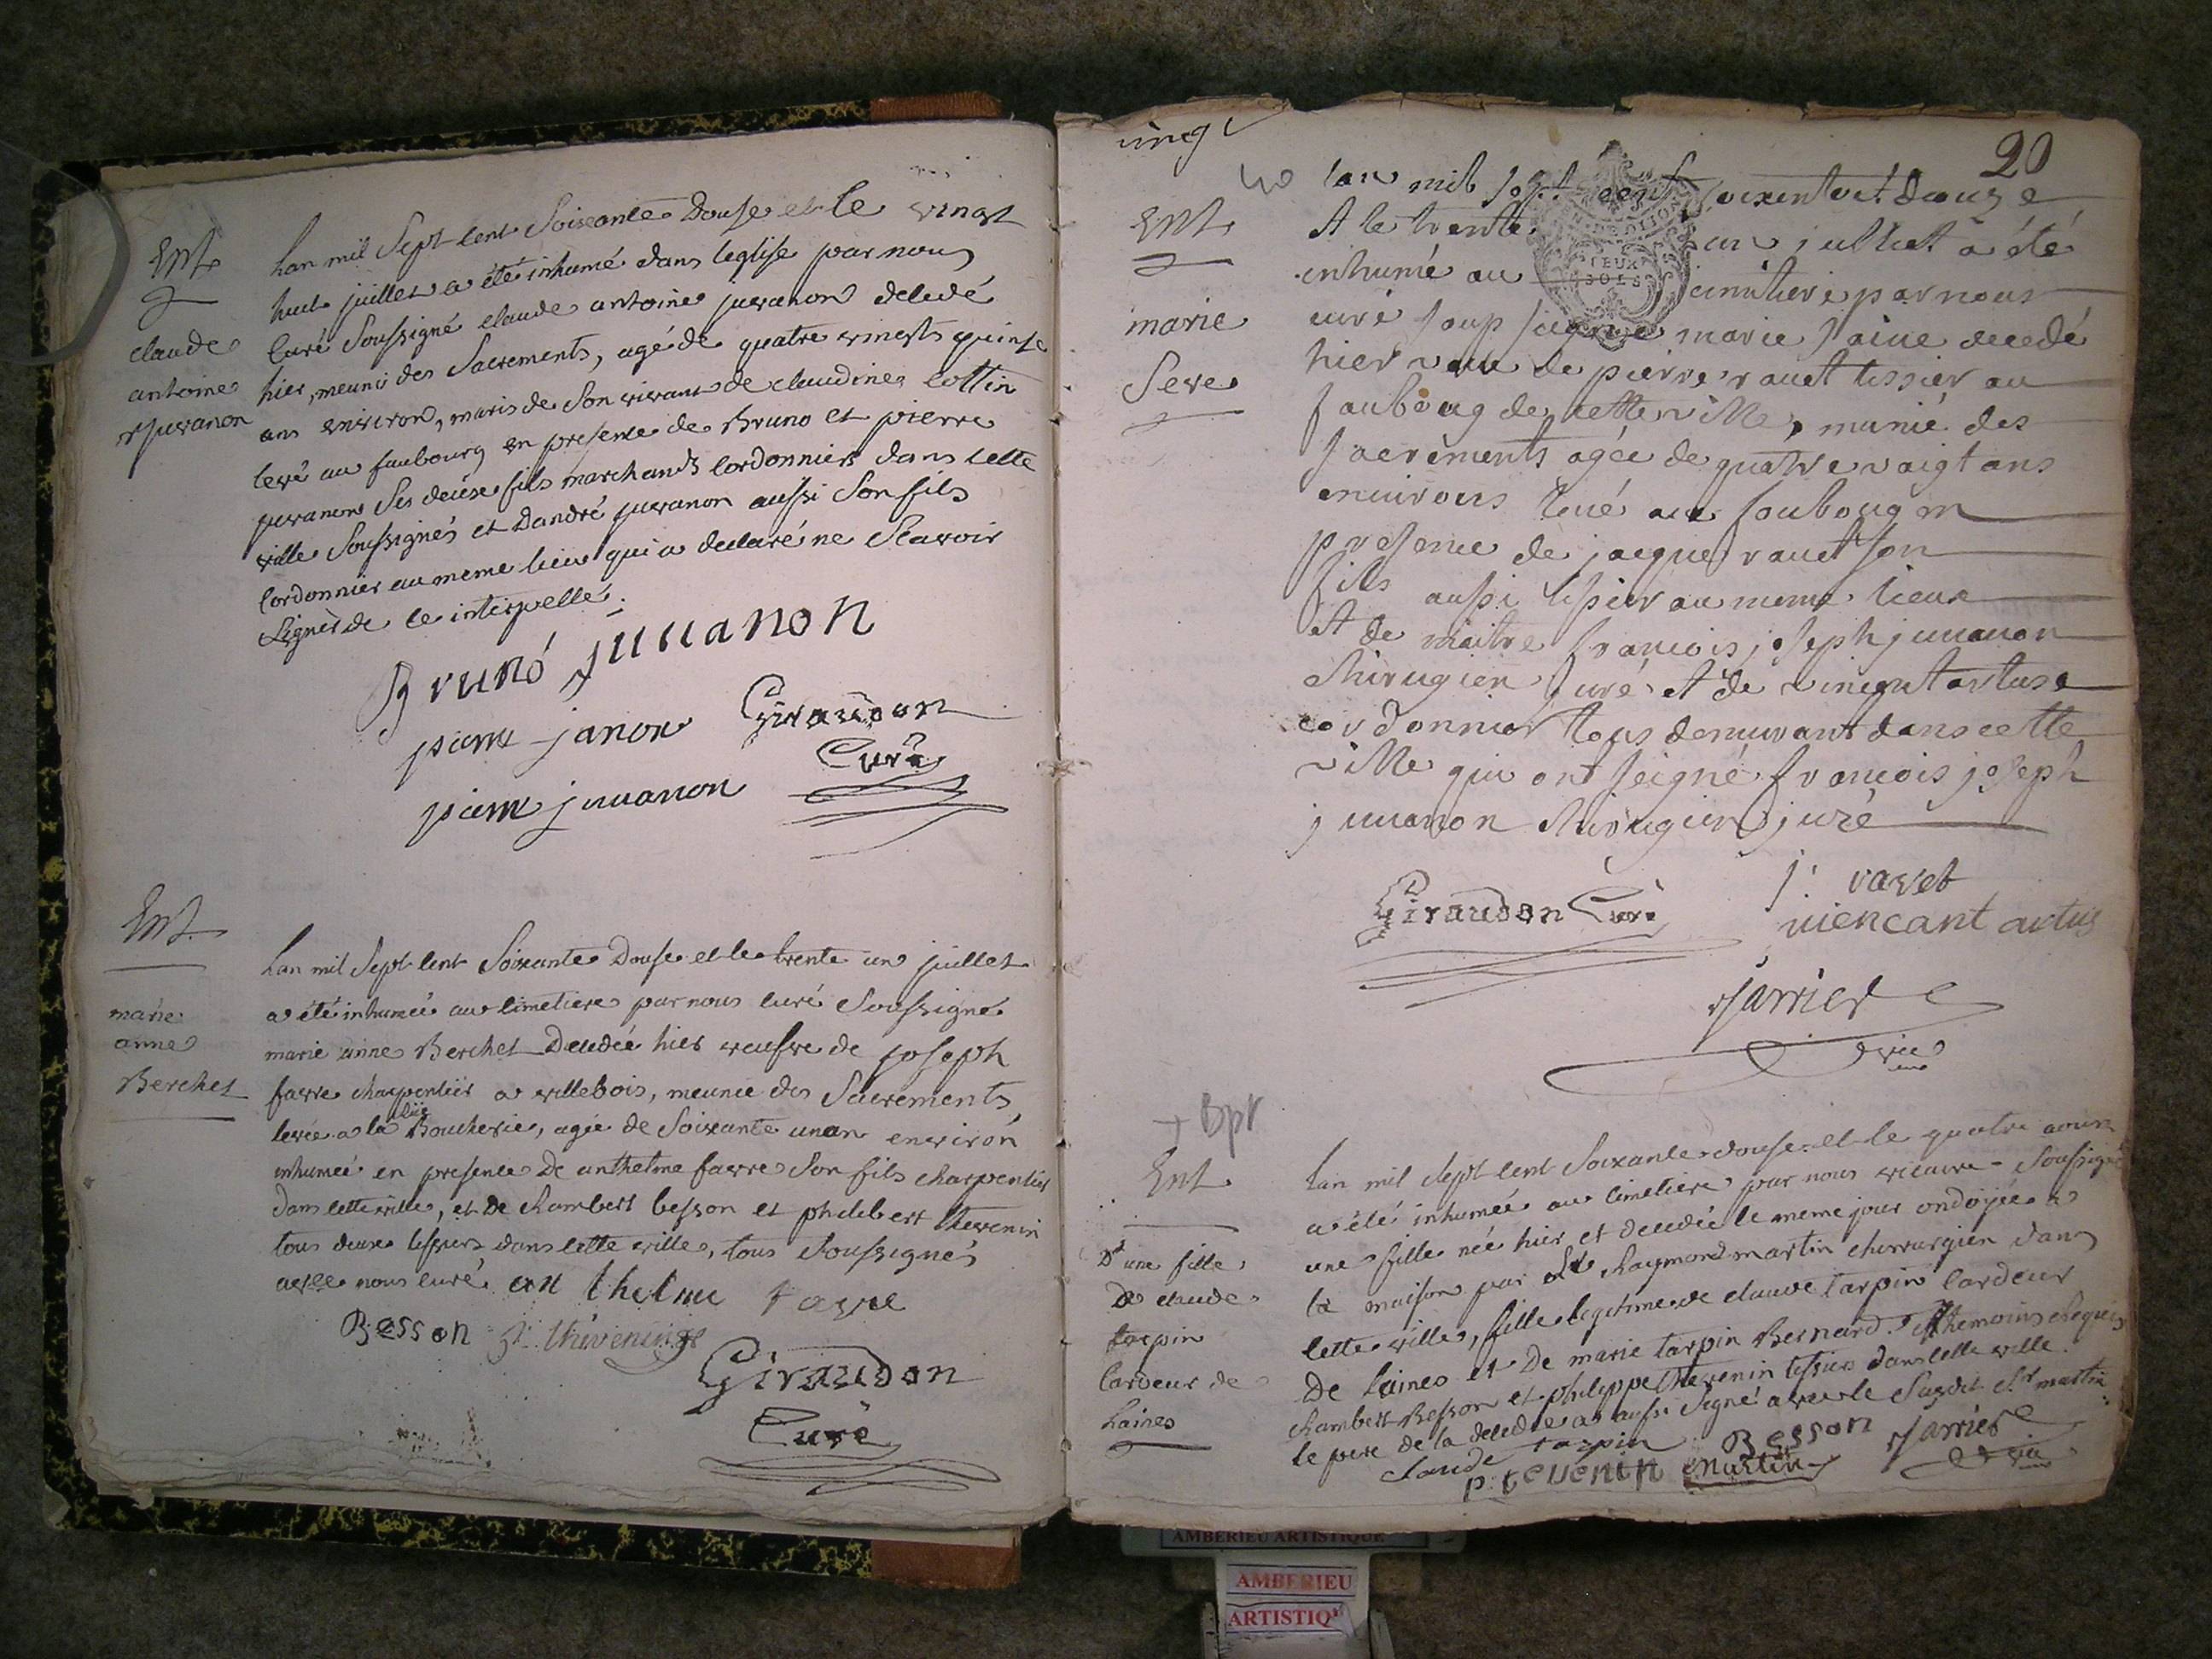 Ent
claude
antoine
juvanon
Lan mil Sept Cent Soixante Douse et le vingt
huit juillet a été inhumé dans leglise par nous
Curé Soussigné claude antoine juvanon decedé
hier, meuni des Sacrements, agé de quatre vingts quinse
ans environ, maris de son vivant de claudine Cottin
levé au faubourg en presence de Bruno et pierre
juvanon Ses deuse fils marchands Cordonniers dans cette
ville Soussignés et Dandré juvanon aussi Son fils
Cordonnier au meme lieu qui a declaré ne Scavoir
Signer de ce interpellé.
Brunó juuanon
pierre janon Giraudon
Curé
pierre juuanon
Ent.
marie
anne
Berchet
Lan mil Sept Cent Soixante Douse et le trente un juillet
a été inhumée au Cimetiere par nous curé Soussigné
marie anne Berchet Decedée hier veufve de joseph
favre charpentier a villebois, meunie des Sacrements,
levée a la Boucherie, agée de Soixante un an environ
inhumeé en presence De anthelme favre Son fils charpentier
dans cette ville, et De Chambert besson et philibert thevenin
tous deuse tissiers dans cette ville, tous Soussignés
avec nous curé an thelme favre
Besson p. thivenin
Giraudon
Curé
vingt
20
40
Ent
marie
Seve
lan mil sept cent soixente et douze
et le trente un juillet a été
inhumé au cimitiere par nous
curé soup signé marie saive decedé
hier veve de pierre ravet tissier au
fauboug de cette ville, munié des
sacrements agée de quatre vaigt ans
enuirons leué au fouboug en
presence de jacque ravet son
fils aussi tissier au meme lieux
et de maitre francois joseph juuanon
chirugien juré et de vincent artuse
cordonnier tous demurant dans cette
ville qui ont seigné francois joseph
juuanon chirugien juré
DEUX
SOLS
Giraudon Curé
j: ravet
viencant artus
jarrier
vic
+ Bpt
Ent.
D'une fille
De claude
tarpin
Cardeur de
Laines
Lan mil Sept Cent Soixante douse et le quatre aoust
a été inhumée au Cimetiere par nous vicaire Soussigné
une fille née hier et decedée le meme jour ondoyée a
la maison par Sr Raymond martin chirurgien dans
cette ville, fille legitime de claude tarpin Cardeur
De Laines et De marie tarpin Bernard. thémoins requis
Chambert Besson et philippe thevenin tissiers dans cette ville.
le pere de la decedée a aussi Signé avec le Susdit Sr martin
claude tarpin Besson jarrier
p. tevenin Martin vic
AMBERIEU ARTISTIQUE
AMBERIEU
ARTISTIQ